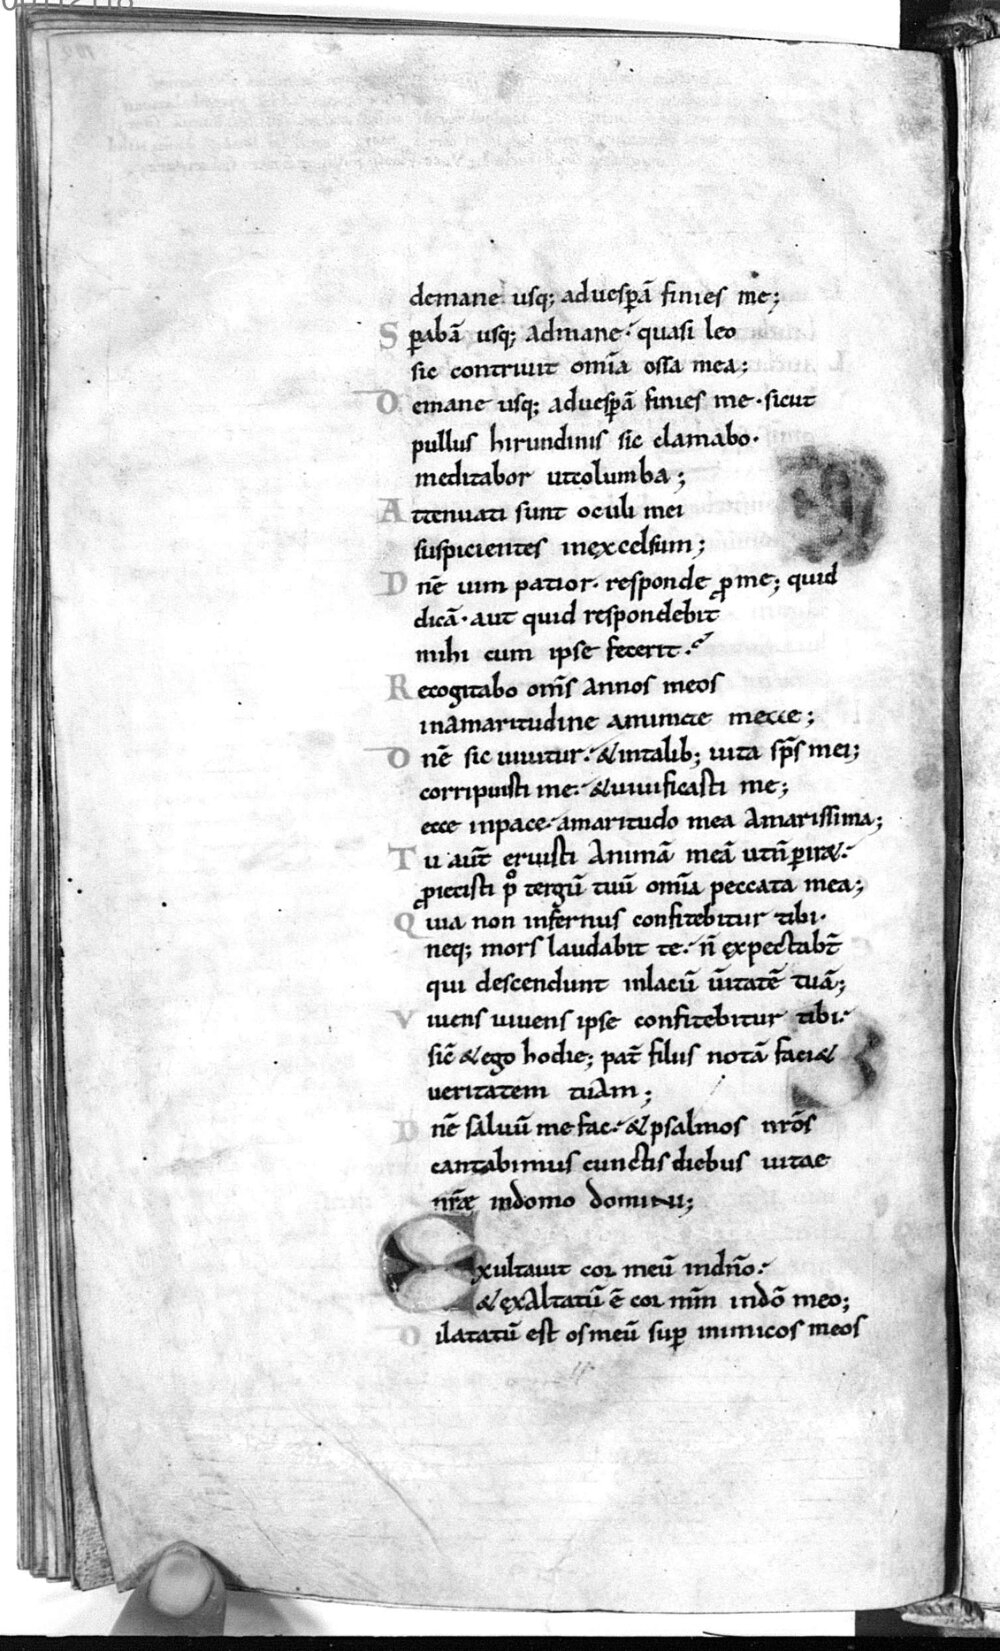 demane usq; aduesꝑā finies me;
Sꝑabā usq; admane·́ quasi leo
sic contriuit om̄ia ossa mea;
Demane usq; aduesꝑā finies me· sicut
pullus hirundinis sic clamabo·
meditabor utcolumba;
Attenuati sunt oculi mei
suspicientes inęxcelsum;
Dn̄e uim patior· responde ꝓme; quid
dicā· aut quid respondebit
mihi cum ipse fecerit·
Recogitabo om̄s annos meos
inamaritudine animae meae;
Dn̄e sic uiuitur·́ &intalib; uita sp̄s mei;
corripuisti me·́ &uiuificasti me;
ecce inpace·́ amaritudo mea amarissima;
Tu aut̄ eruisti animā meā utn̄ꝑir&·́
ꝓiecisti pͦ tergū tuū om̄ia peccata mea;
Quia non infernus confitebitur tibi·
neq; mors laudabit te·́ n̄ ęxpectabt̄
qui descendunt inlacū ūitatē tuā;
Viuens uiuens ipse confitebitur tibi·́
sic̄ &ego hodie; pat̄ filiis notā faci&
ueritatem tuam;
Dn̄e saluū me fac·́ &psalmos nr̄os
cantabimus cunctis diebus uitae
nr̄ae indomo domini;
Exultauit cor meū indn̄o·́
&ęxaltatū ē cor mm̄ indō meo;
Dilatatū est osmeū suꝑ inimicos meos